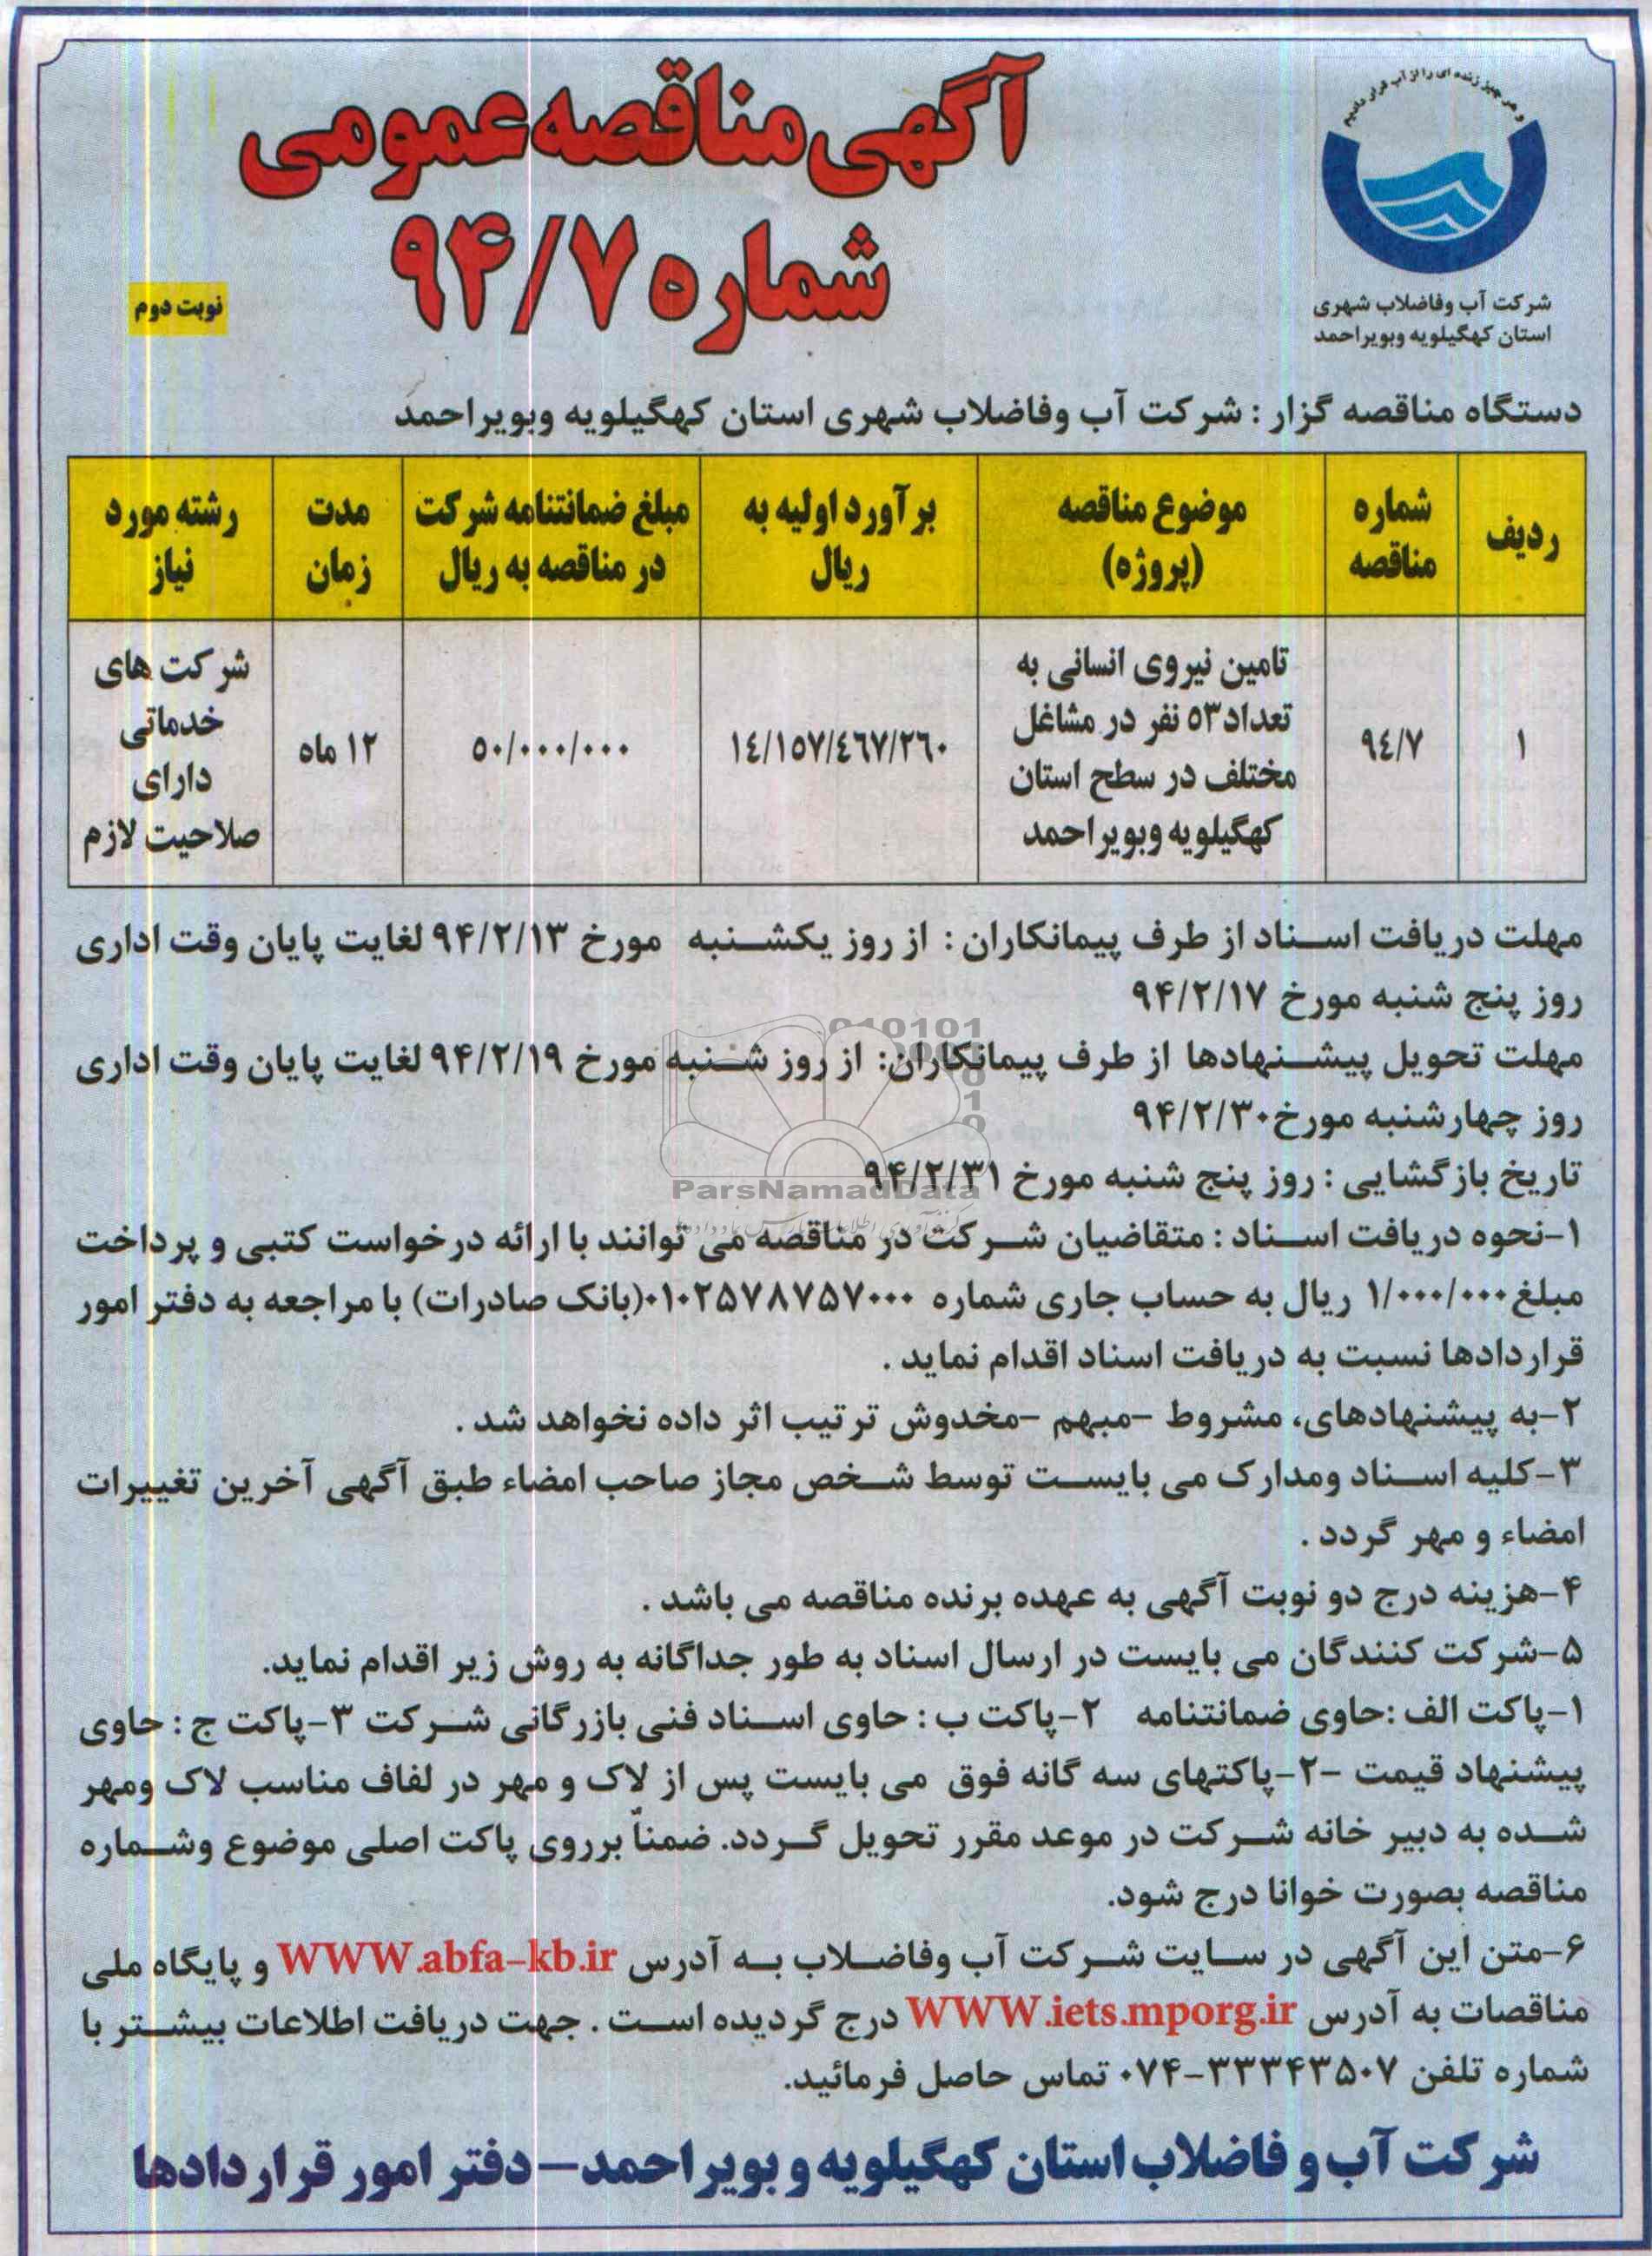 و هر چیز زنده ای را از آب قرار دادیم
شرکت آب وفاضلاب شهری
استان کهگیلویه وبویراحمد
آگهی مناقصه عمومی
شماره ۹۴/۷
نوبت دوم
دستگاه مناقصه گزار : شرکت آب وفاضلاب شهری استان کهگیلویه وبویراحمد
ردیف
شماره
مناقصه
موضوع مناقصه
(پروژه)
برآورد اولیه به
ریال
مبلغ ضمانتنامه شرکت
در مناقصه به ریال
مدت
زمان
رشته مورد
نیاز
۱
۹٤/۷
تامین نیروی انسانی به
تعداد۵۳ نفر در مشاغل
مختلف در سطح استان
کهگیلویه وبویراحمد
۱٤/۱۵۷/٤٦۷/۲٦۰
۵۰/۰۰۰/۰۰۰
۱۲ ماه
شرکت های
خدماتی
دارای
صلاحیت لازم
مهلت دریافت اسناد از طرف پیمانکاران : از روز یکشنبه مورخ ۹۴/۲/۱۳ لغایت پایان وقت اداری
روز پنج شنبه مورخ ۹۴/۲/۱۷
مهلت تحویل پیشنهادها از طرف پیمانکاران: از روز شنبه مورخ ۹۴/۲/۱۹ لغایت پایان وقت اداری
روز چهارشنبه مورخ۹۴/۲/۳۰
تاریخ بازگشایی : روز پنج شنبه مورخ ۹۴/۲/۳۱
ParsNamadData
۱-نحوه دریافت اسناد : متقاضیان شرکت در مناقصه می توانند با ارائه درخواست کتبی و پرداخت
مبلغ۱/۰۰۰/۰۰۰ ریال به حساب جاری شماره ۰۱۰۲۵۷۸۷۵۷۰۰۰(بانک صادرات) با مراجعه به دفتر امور
قراردادها نسبت به دریافت اسناد اقدام نماید .
۲-به پیشنهادهای، مشروط -مبهم -مخدوش ترتیب اثر داده نخواهد شد .
۳-کلیه اسناد ومدارک می بایست توسط شخص مجاز صاحب امضاء طبق آگهی آخرین تغییرات
امضاء و مهر گردد .
۴-هزینه درج دو نوبت آگهی به عهده برنده مناقصه می باشد .
۵-شرکت کنندگان می بایست در ارسال اسناد به طور جداگانه به روش زیر اقدام نماید.
۱-پاکت الف :حاوی ضمانتنامه ۲-پاکت ب : حاوی اسناد فنی بازرگانی شرکت ۳-پاکت ج : حاوی
پیشنهاد قیمت -۲-پاکتهای سه گانه فوق می بایست پس از لاک و مهر در لفاف مناسب لاک ومهر
شده به دبیر خانه شرکت در موعد مقرر تحویل گردد. ضمناً برروی پاکت اصلی موضوع وشماره
مناقصه بصورت خوانا درج شود.
۶-متن این آگهی در سایت شرکت آب وفاضلاب به آدرس WWW.abfa-kb.ir و پایگاه ملی
مناقصات به آدرس WWW.iets.mporg.ir درج گردیده است . جهت دریافت اطلاعات بیشتر با
شماره تلفن ۳۳۳۴۳۵۰۷-۰۷۴ تماس حاصل فرمائید.
شرکت آب و فاضلاب استان کهگیلویه و بویراحمد – دفتر امور قراردادها